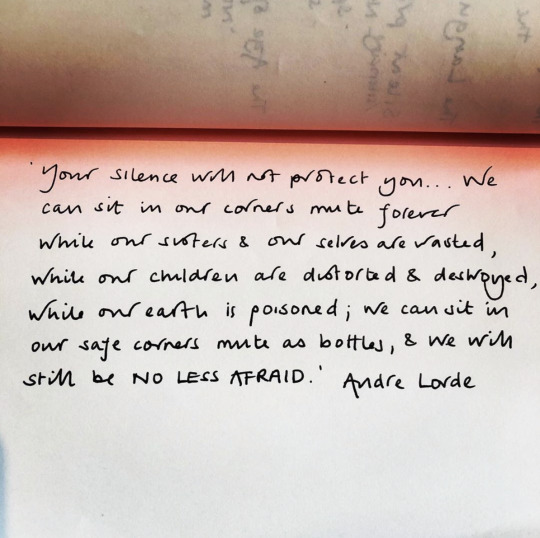 'Your silence will not protect you... We
can sit in our corners mute forever
while our sisters & our selves are wasted,
while our children are distorted & destroyed,
while our earth is poisoned; we can sit in
our safe corners mute as bottles, & we will
still be NO LESS AFRAID.' Andre Lorde